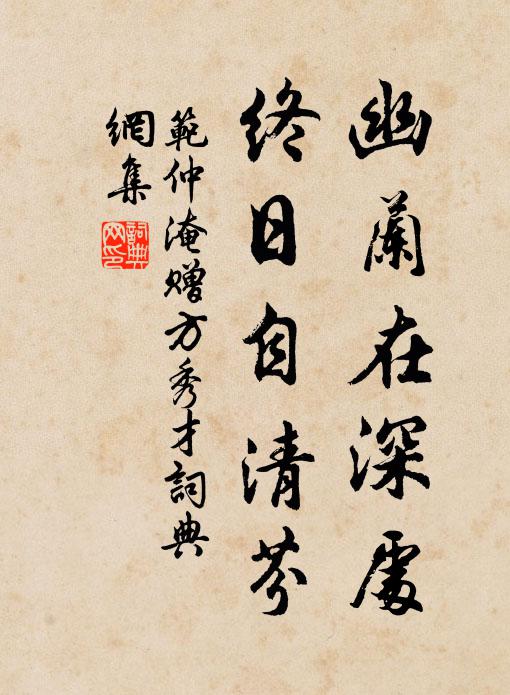 幽蘭在深處
終日自清芬
範仲淹赠方秀才詞典
網集
詞典
网印